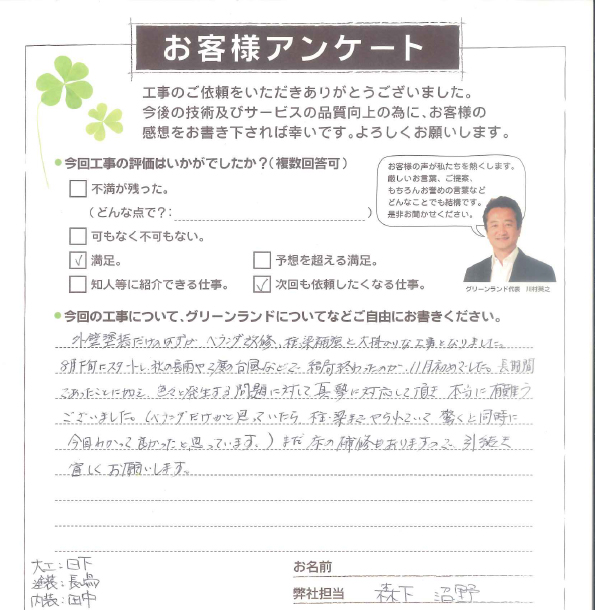 お客様アンケート
工事のご依頼をいただきありがとうございました。
今後の技術及びサービスの品質向上の為に、お客様の
感想をお書き下されば幸いです。よろしくお願いします。
●今回工事の評価はいかがでしたか？（複数回答可）
不満が残った。
（どんな点で？： ）
可もなく不可もない。
✓ 満足。 予想を超える満足。
知人等に紹介できる仕事。 ✓ 次回も依頼したくなる仕事。
お客様の声が私たちを熱くします。
厳しいお言葉、ご提案、
もちろんお誉めの言葉など
どんなことでも結構です。
是非お聞かせください。
グリーンランド代表
●今回の工事について、グリーンランドについてなどご自由にお書きください。
外壁塗装だけのはずが ベランダ改修、柱、梁補強と大掛かりな工事となりました。
8月下旬にスタートし、秋の長雨や2度の台風などで、結局終わったのが、11月初めでした。長期間
であったことに加え、色々と発生する問題に対して真摯に対応して頂き 本当に有難う
ございました。（ベランダだけかと思っていたら 柱・梁までやられていて 驚くと同時に
今回わかって良かったと思っています。）まだ床の補修もありますので、引続き
宜しくお願いします。
大工：日下
塗装：長島
内装：田中
お名前
弊社担当 森下 沼野